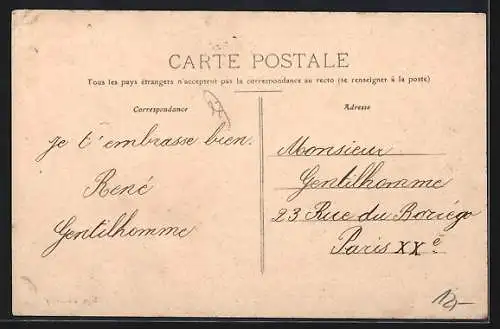 CARTE POSTALE
Tous les pays étrangers n'acceptent pas la correspondance au recto (se renseigner à la poste)
Correspondance
Adresse
je t'embrasse bien.
René
Gentilhomme
Monsieur
Gentilhomme
23 Rue du Boriégo
Paris XXe